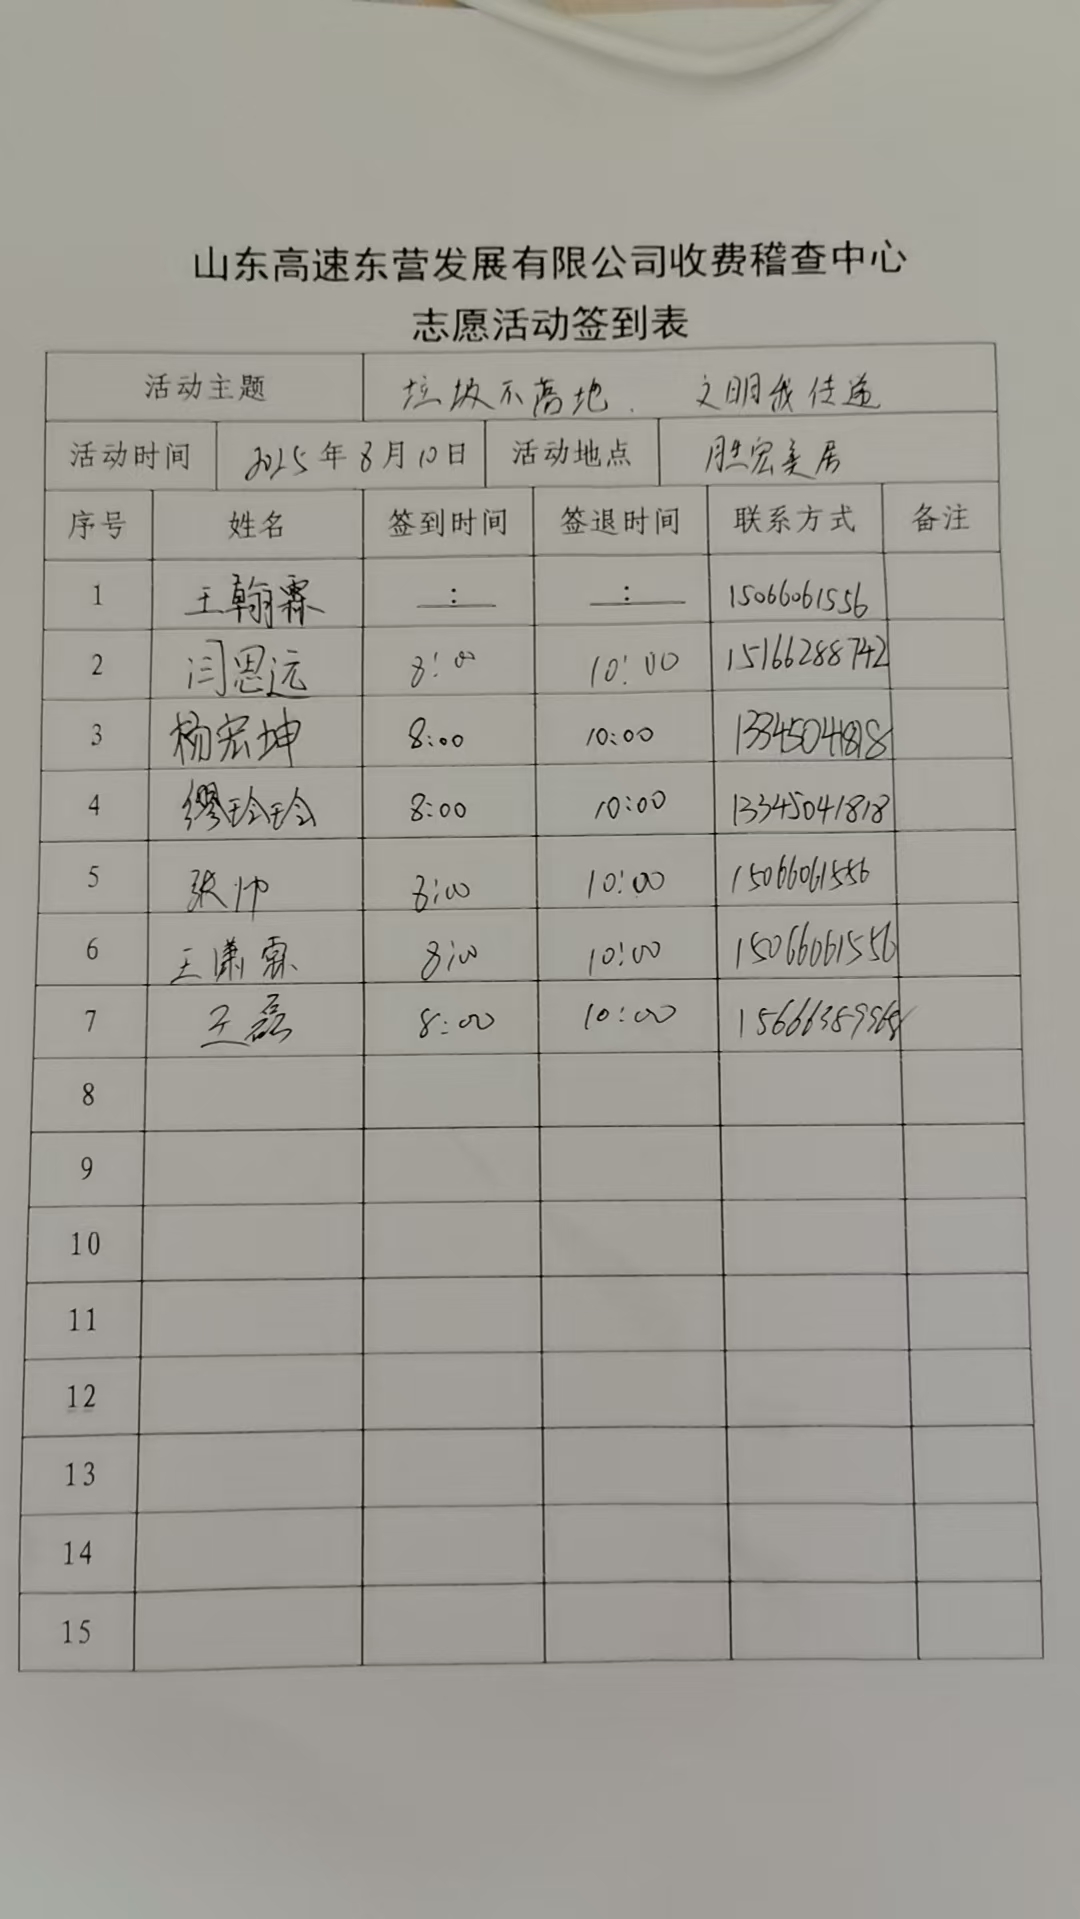 山东高速东营发展有限公司收费稽查中心
志愿活动签到表
活动主题 垃圾不落地. 文明我传递
活动时间 2025年8月10日 活动地点 胜宏美居
序号 姓名 签到时间 签退时间 联系方式 备注
1 王翰霖 : : 15066061556
2 闫思远 8:00 10:00 15166288742
3 杨宏坤 8:00 10:00 13345041818
4 缪玲玲 8:00 10:00 13345041818
5 张帅 8:00 10:00 15066061556
6 王潇霖 8:00 10:00 15066061556
7 王磊 8:00 10:00
8
9
10
11
12
13
14
15